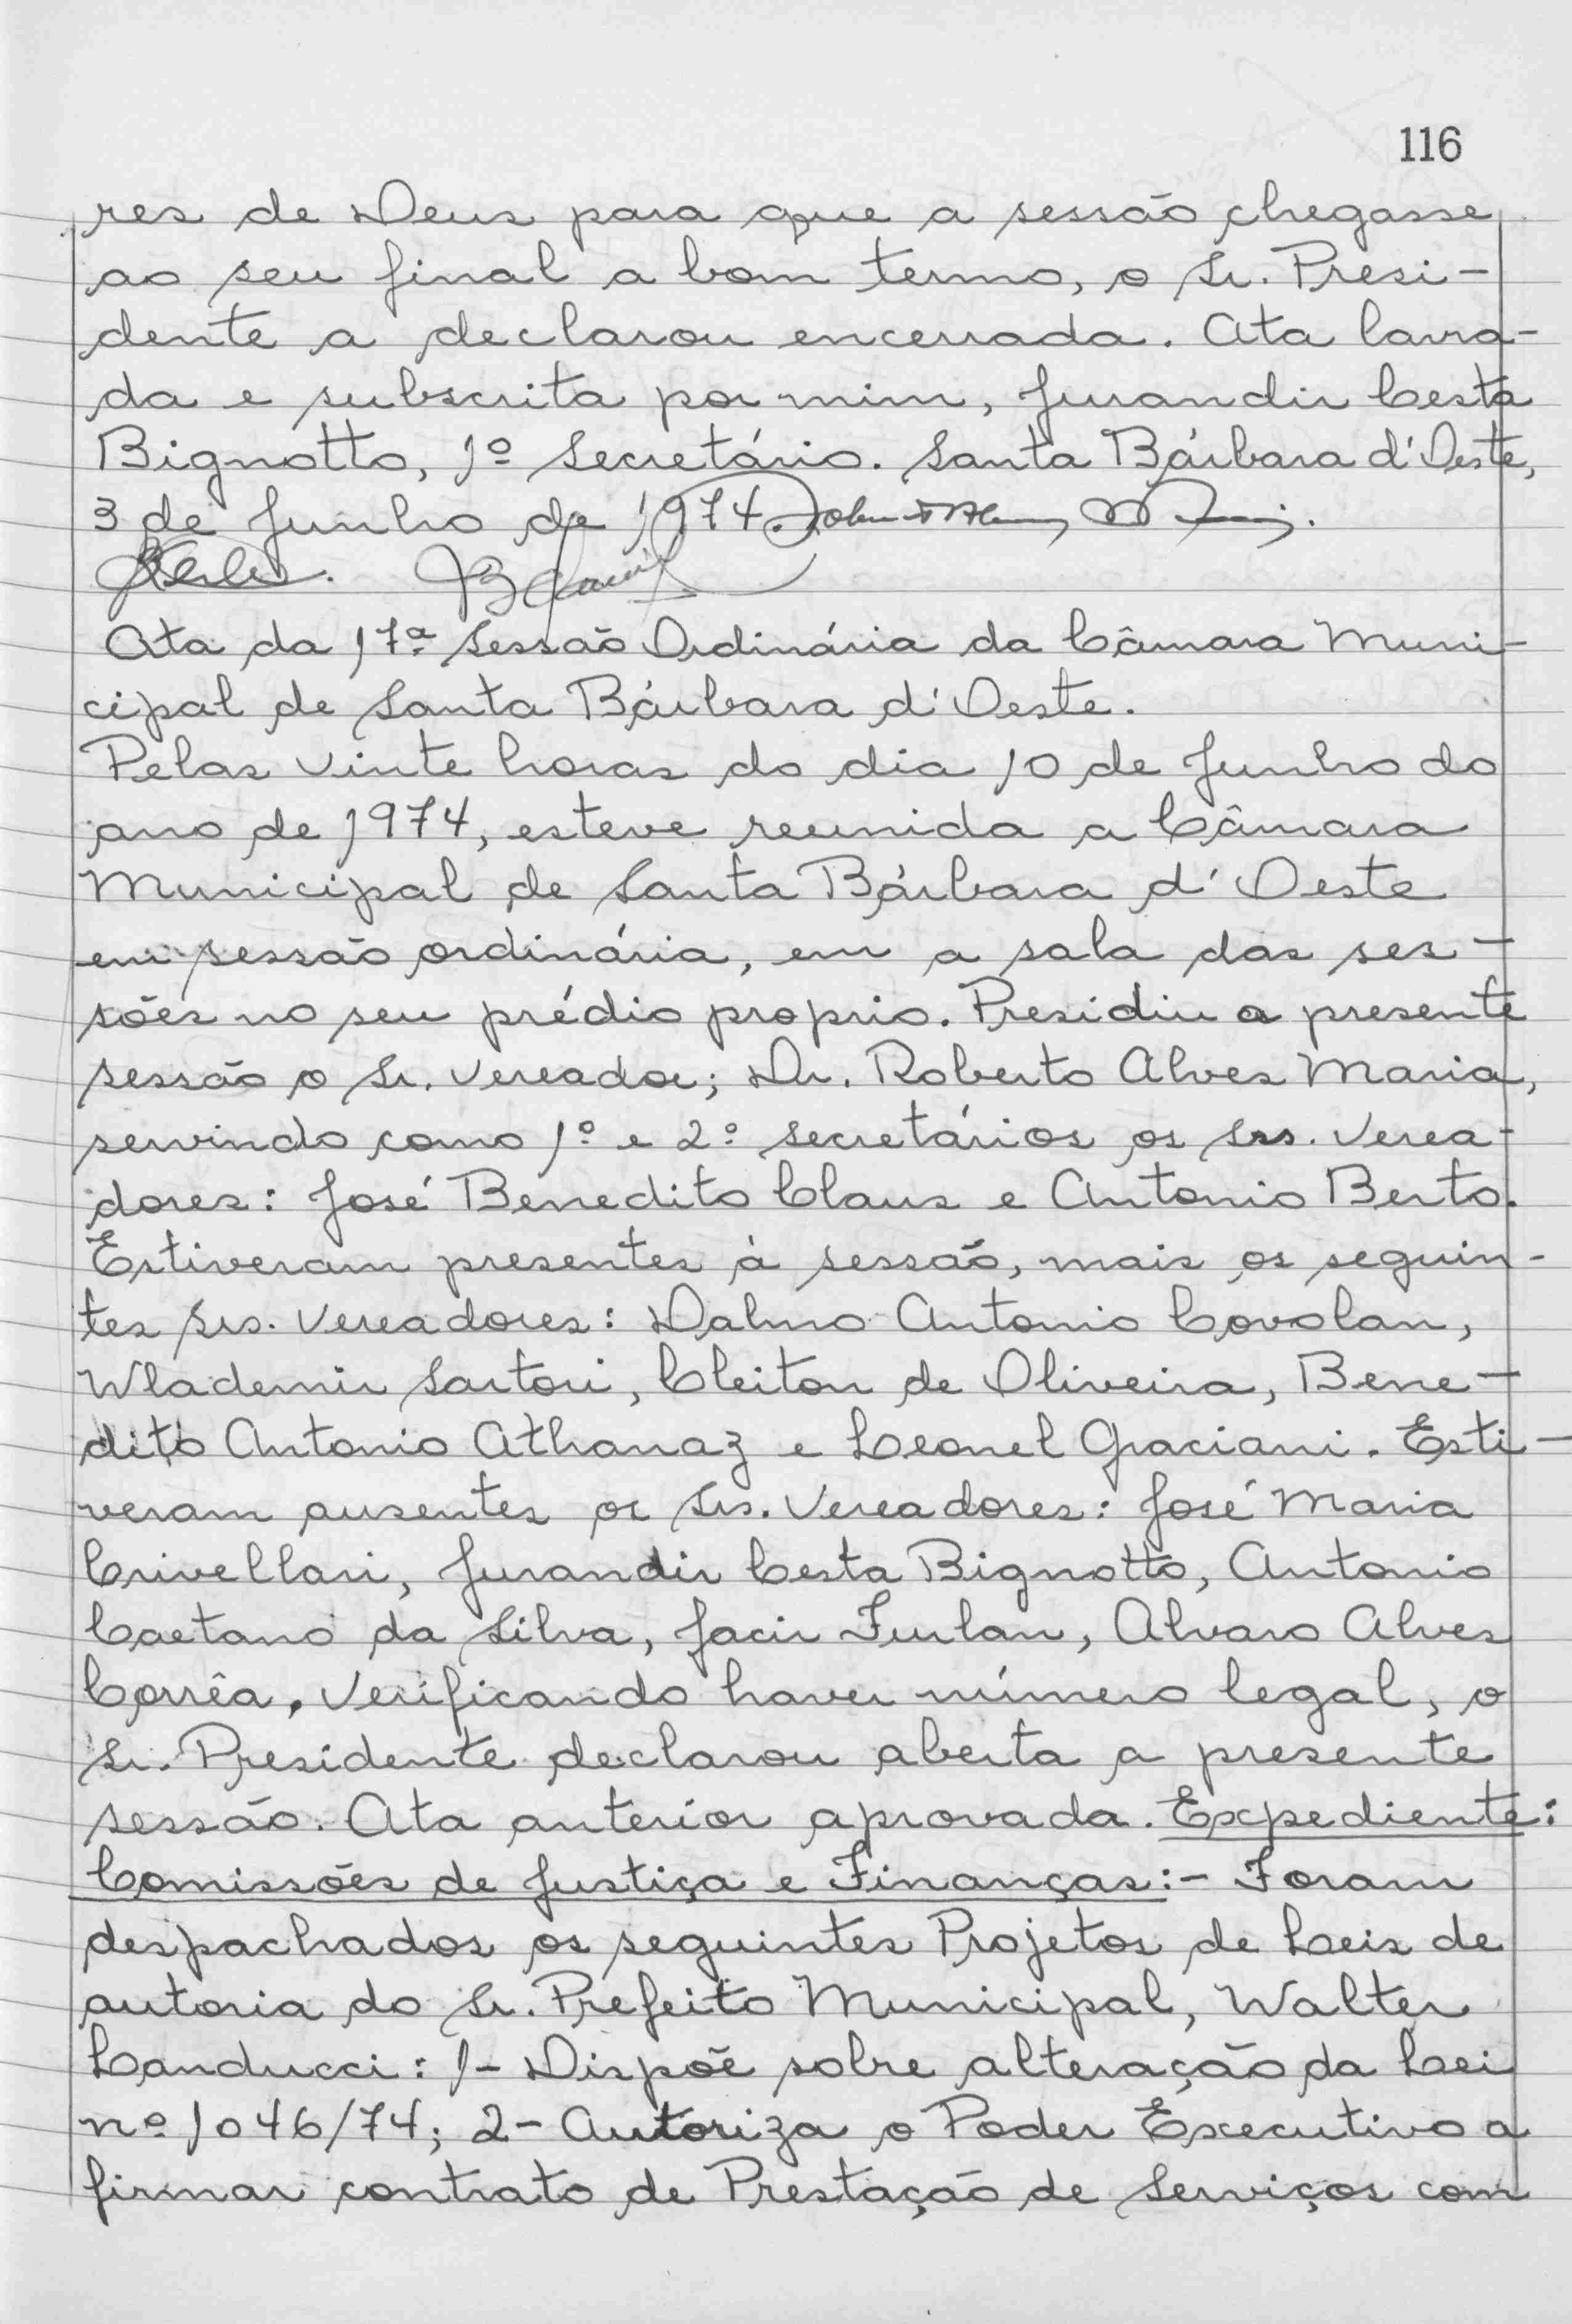 116
res de Deus para que a sessão chegasse
ao seu final a bom termo, o Sr. Presi-
dente a declarou encerrada. Ata lavra-
da e subscrita por mim, Jurandir Cesta
Bignotto, 1º Secretário. Santa Bárbara d'Oeste,
3 de Junho de 1974.
Ata da 17ª Sessão Ordinária da Câmara Muni-
cipal de Santa Bárbara d'Oeste.
Pelas vinte horas do dia 10 de Junho do
ano de 1974, esteve reunida a Câmara
Municipal de Santa Bárbara d'Oeste
em sessão ordinária, em a sala das ses-
sões no seu prédio proprio. Presidiu a presente
sessão o Sr. Vereador; Dr. Roberto Alves Maria,
servindo como 1º e 2º secretários os Srs. Verea-
dores: José Benedito Claus e Antonio Berto.
Estiveram presentes à sessão, mais os seguin-
tes Srs. Vereadores: Dalmo Antonio Covolan,
Wlademir Sartori, Cleiton de Oliveira, Bene-
dito Antonio Athanaz e Leonel Graciani. Esti-
veram ausentes os Srs. Vereadores: José Maria
Crivellari, Jurandir Cesta Bignotto, Antonio
Caetano da Silva, Jacir Furlan, Alvaro Alves
Corrêa. Verificando haver número legal, o
Sr. Presidente declarou aberta a presente
sessão. Ata anterior aprovada. Expediente:
Comissões de Justiça e Finanças:- Foram
despachados os seguintes Projetos de Leis de
autoria do Sr. Prefeito Municipal, Walter
Landucci: 1- Dispõe sobre alteração da Lei
nº 1046/74; 2- Autoriza o Poder Executivo a
firmar contrato de Prestação de Serviços com